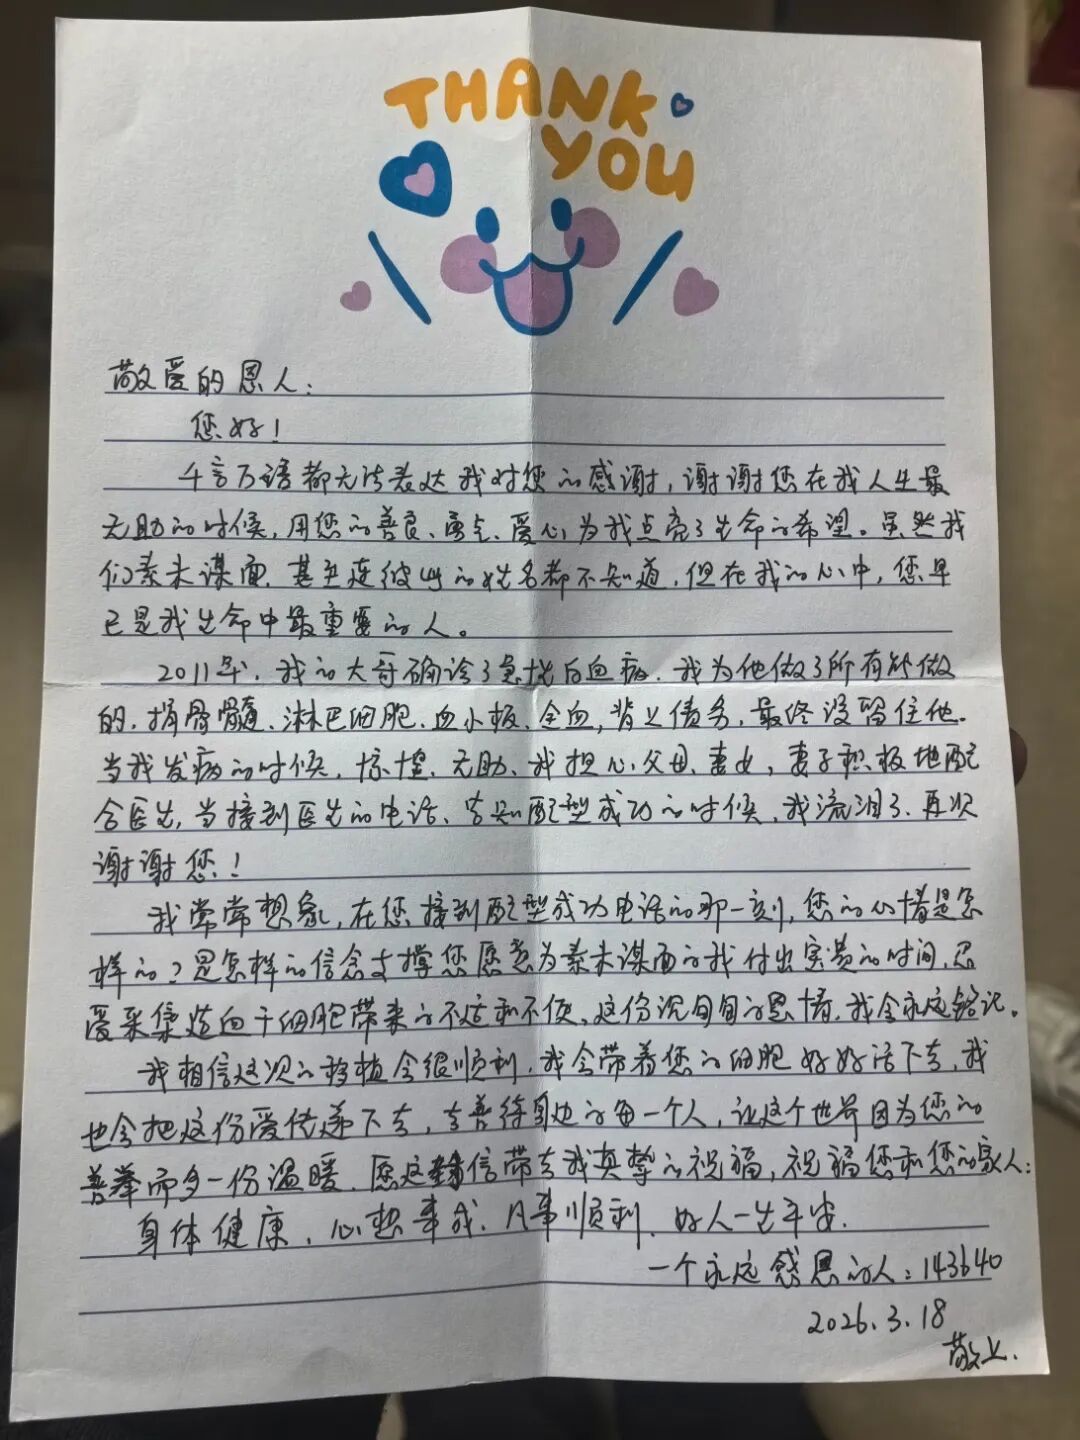 THANK
YOU
敬爱的恩人：
您好！
千言万语都无法表达我对您的感谢，谢谢您在我人生最
无助的时候，用您的善良、勇气、爱心为我点亮了生命的希望。虽然我
们素未谋面，甚至连彼此的姓名都不知道，但在我的心中，您早
已是我生命中最重要的人。
2011年，我的大哥确诊了急性白血病，我为他做了所有能做
的，捐骨髓、淋巴细胞、血小板、全血，背上债务，最终没留住他。
当我发病的时候，惊慌、无助、我担心父母、妻女，妻子积极地配
合医生，当接到医生的电话、告知配型成功的时候，我流泪了、再次
谢谢您！
我常常想象，在您接到配型成功电话的那一刻，您的心情是怎
样的？是怎样的信念支撑您愿意为素未谋面的我付出宝贵的时间，忍
受采集造血干细胞带来的不适和不便，这份沉甸甸的恩情，我会永远铭记。
我相信这次的移植会很顺利，我会带着您的细胞好好活下去，我
也会把这份爱传递下去，去善待身边的每一个人，让这个世界因为您的
善举而多一份温暖，愿这封信带去我真挚的祝福，祝福您和您的家人：
身体健康，心想事成，凡事顺利，好人一生平安。
一个永远感恩的人：143640
2026.3.18
敬上.